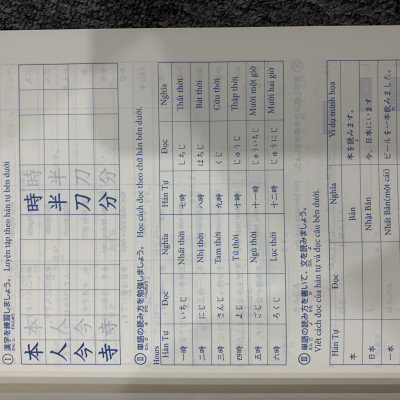 Ⅰ 漢字を練習しましょう。 Luyện tập theo hán tự bên dưới
本 本 時 時
人 人 半 半
今 今 刀 刀
寺 寺 分 分
Ⅱ 単語の読み方を勉強しましょう。 Học cách đọc theo chữ hán bên dưới.
Hours
Hán Tự Đọc Nghĩa Hán Tự Đọc Nghĩa
一時 いちじ Nhất thời 七時 しちじ Thất thời
二時 にじ Nhị thời 八時 はちじ Bát thời
三時 さんじ Tam thời 九時 くじ Cửu thời
四時 よじ Tứ thời 十時 じゅうじ Thập thời
五時 ごじ Ngũ thời 十一時 じゅういちじ Mười một giờ
六時 ろくじ Lục thời 十二時 じゅうにじ Mười hai giờ
Ⅲ 単語の読み方を書いて、文を読みましょう。
Viết cách đọc của hán tự và đọc câu bên dưới.
Hán Tự Đọc Nghĩa Ví dụ minh họa
本 Bản 本を読みます。
日本 Nhật Bản 今、日本にいます
一本 Nhất Bản(một cái) ビールを一本飲みました。